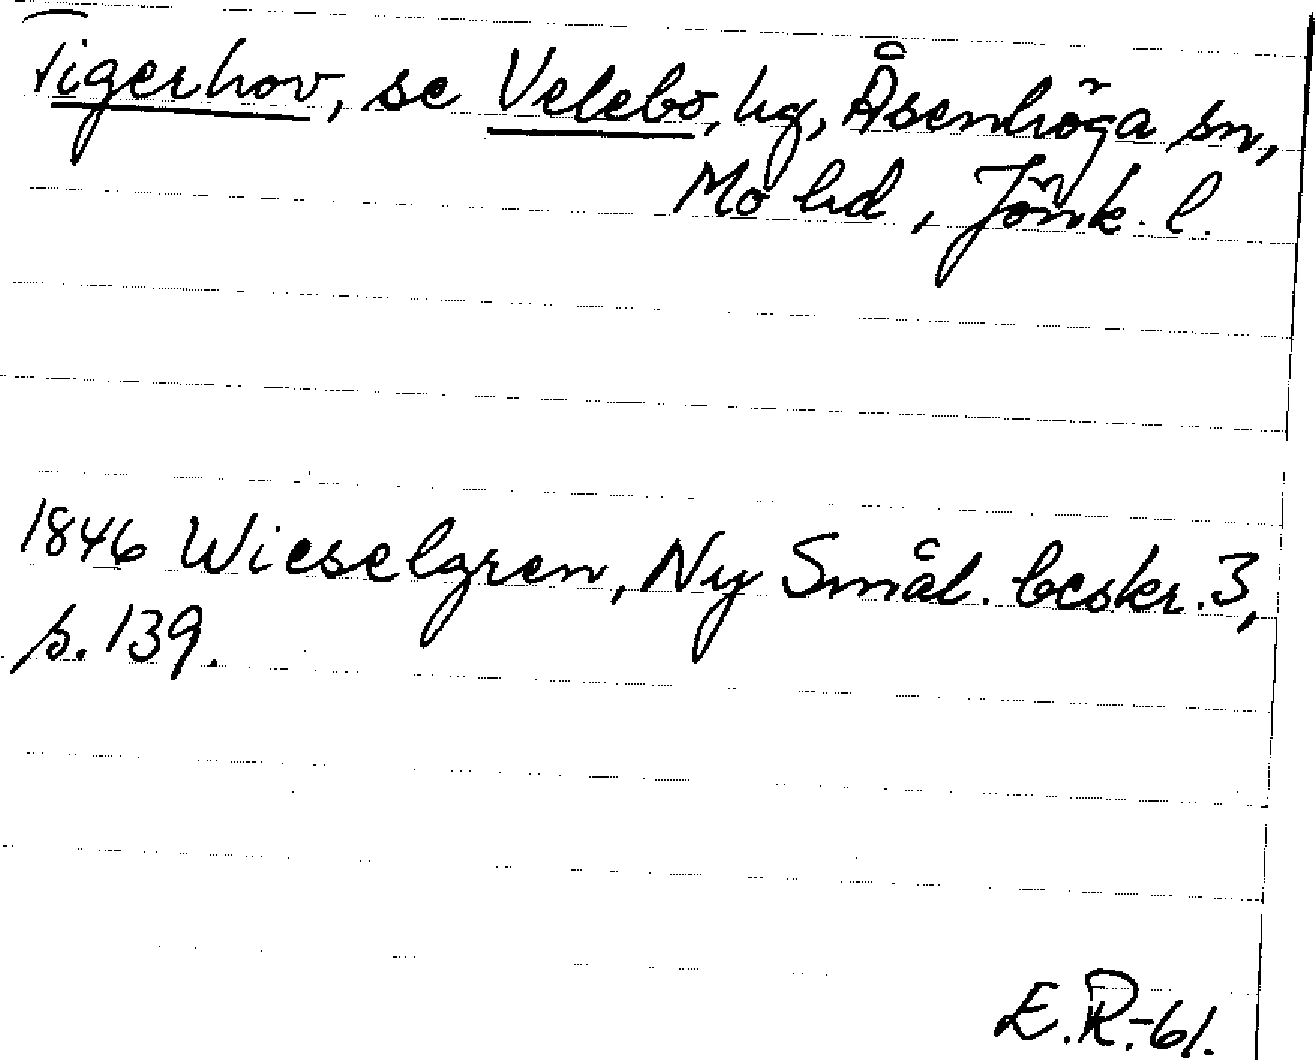 Tigerhov, se Velebo, hg, Åsenhöga sn,
Mo hd, Jönk. l.
1846 Wieselgren, Ny Smål. beskr. 3,
s. 139.
E.R.-61.